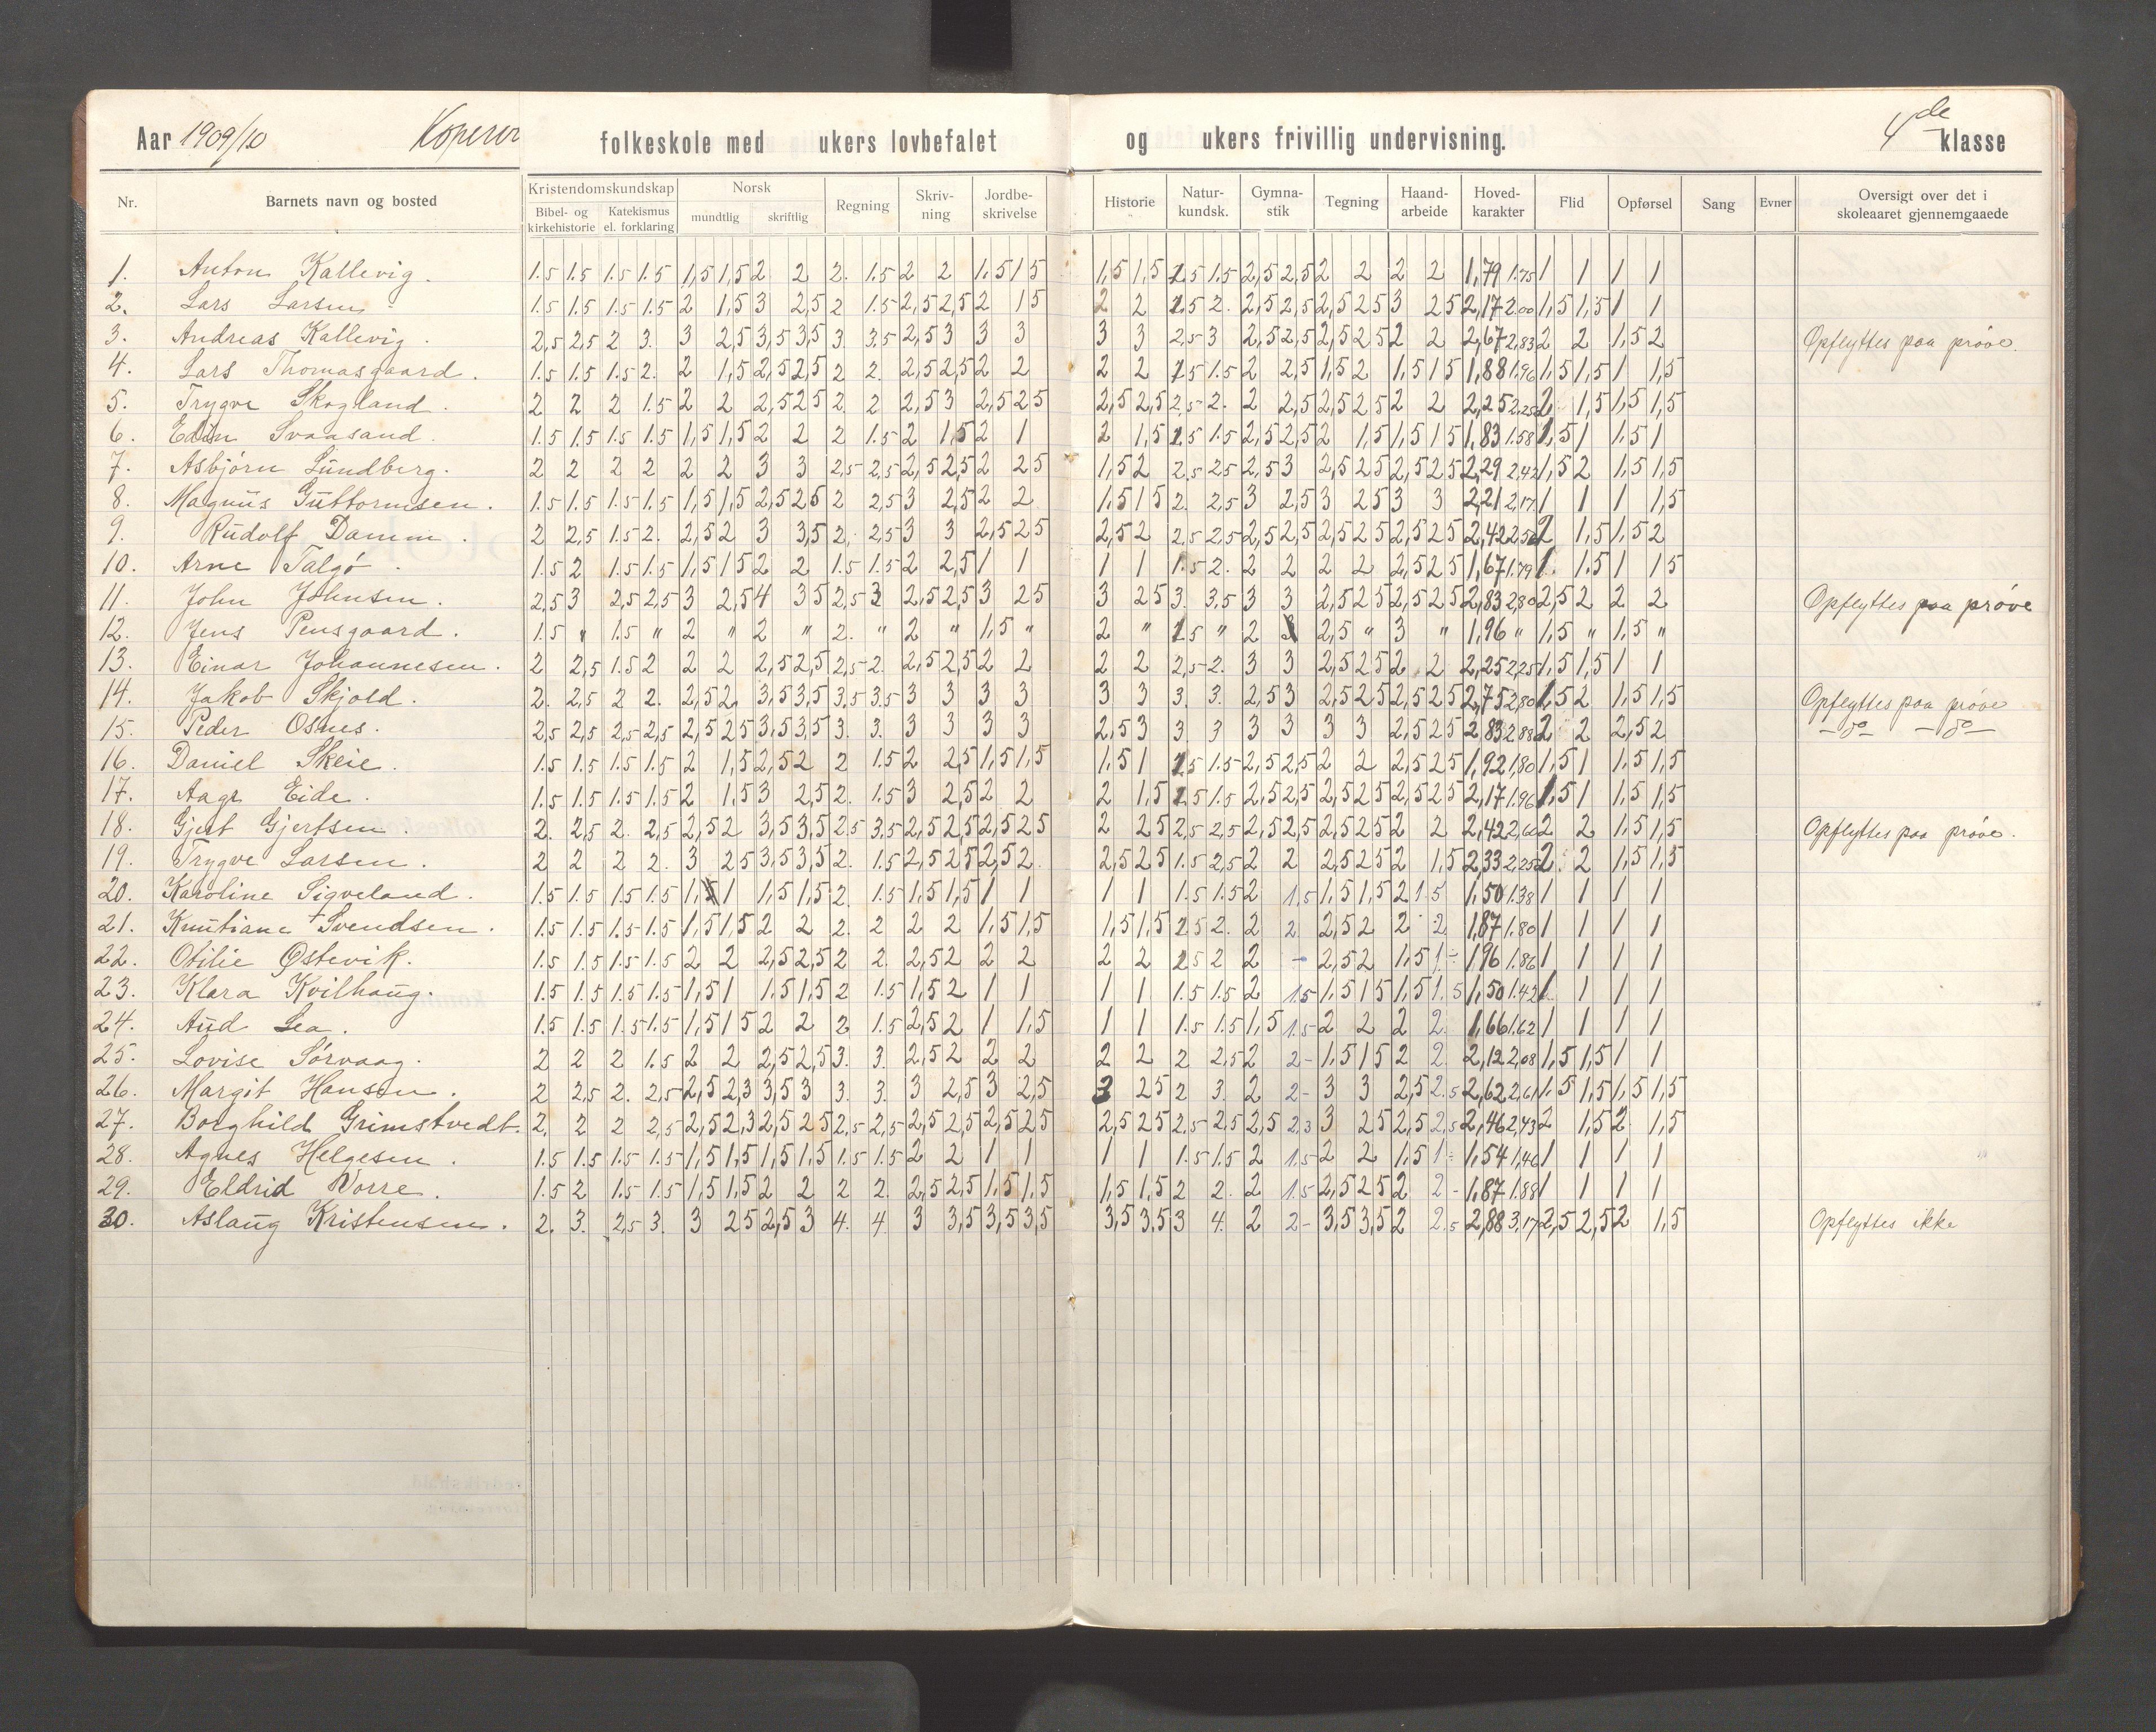 Aar 1909/10 folkeskole med ukers lovbefalet og ukers frivillig undervisning. 4de klasse
Nr. Barnets navn og bosted Kristendomskundskap Norsk Regning Skriv-ning Jordbe-skrivelse Historie Natur-kundsk. Gymna-stik Tegning Haand-arbeide Hoved-karakter Flid Opførsel Sang Evner Oversigt over det i skoleaaret gjennemgaaede
Bibel- og kirkehistorie Katekismus el. forklaring mundtlig skriftlig
1. Anton Kallevig. 1.5 1.5 1.5 1.5 1,5 1,5 2 2 2. 1.5 2 2 1,5 1 5 1,5 1,5 1.5 1.5 2,5 2,5 2 2 2 2 1,79 1.75 1 1 1 1
2. Lars Larsen 1.5 1.5 1.5 1.5 2 1,5 3 2,5 2 1.5 2,5 2,5 2 1 5 2 2 1.5 2. 2,5 2,5 2,5 2 5 3 2 5 2,17 2.00 1,5 1,5 1 1
3. Andreas Kallevig. 2,5 2,5 2 3. 3 2,5 3,5 3,5 3. 3.5 2,5 3 3 3 3 3 2.5 3 2,5 2,5 2,5 2 5 2 2 2,67 2,83 2 2 1,5 2 Opflyttes paa prøve.
4. Lars Thomasgaard. 1.5 1.5 1.5 2. 2 1,5 2,5 2,5 2 2. 2,5 2,5 2 2 2 2 1.5 1.5 2 2,5 1,5 2 1,5 1 5 1,88 1.96 1,5 1,5 1 1,5
5. Trygve Skogland. 2 2 2 1.5 2 2 2,5 2 5 2 2 2,5 3 2,5 2 5 2,5 2,5 2.5 2. 2 2,5 2,5 2 5 2 2 2,25 2,25 2 1,5 1,5 1,5
6. Svaasand. 1.5 1.5 1.5 1.5 1,5 1,5 2 2 2 1.5 2 1,5 2 1 2 1,5 1.5 1.5 2,5 2,5 2 1,5 1,5 1 5 1,83 1.58 1,5 1 1,5 1
7. Asbjørn Lundberg. 2 2 2 2 2 2 3 3 2.5 2.5 2,5 2,5 2 2 5 1,5 2 2.5 2.5 2,5 3 2,5 2 5 2,5 2 5 2,29 2,42 1,5 2 1,5 1,5
8. Magnus Guttormsen. 1.5 1.5 1.5 1.5 1,5 1,5 2,5 2 5 2 2,5 3 2,5 2 2 1,5 1 5 2. 2,5 3 2,5 3 2 5 3 3 2,21 2,17 1 1 1 1,5
9. Rudolf Damm. 2 2,5 1.5 2. 2,5 2 3 3,5 2. 2,5 3 3 2,5 2 5 2,5 2 2.5 2.5 2,5 2,5 2,5 2 5 2,5 2 5 2,42 2,50 2 1,5 1,5 2
10. Arne Talgø. 1.5 2 1.5 1.5 1,5 1 5 2 2 1.5 1.5 2 2,5 1 1 1 1 1.5 2. 2 2 2 2 2,5 2 5 1,67 1.79 1. 1,5 1 1 5
11. John Johnsen. 2,5 3 2,5 2,5 3 2,5 4 3 5 2,5 3 2,5 2,5 3 2 5 3 2 5 3. 3.5 3 3 2,5 2 5 2,5 2 5 2,83 2,80 2,5 2 2 2 Opflyttes paa prøve
12. Jens Pensgaard. 1.5 " 1.5 " 2 " 2 " 2. " 2 " 1,5 " 2 " 1.5 " 2 2,5 " 3 " 1,96 " 1,5 " 1,5 "
13. Einar Johannesen. 2 2,5 1.5 2 2 2 2,5 2,5 2,5 2. 2,5 2,5 2 2 2 2 2.5 2. 3 3 2,5 2 5 2 2 2,25 2,25 1,5 1,5 1 1
14. Jakob Skjold. 2. 2,5 2 2. 2,5 2 3,5 3,5 3,5 3.5 3 3 3 3 3 3 3. 3. 2,5 3 2,5 2,5 2,5 2 5 2,75 2,80 1,5 2 1,5 1,5 Opflyttes paa prøve
15. Peder Osnes. 2,5 2,5 2,5 2,5 2,5 2 5 3,5 3,5 3. 3. 3 3 3 3 2,5 3 3 3 3 3 3 3 2,5 2 5 2,83 2,88 2 2 2,5 2 -do- -do-
16. Daniel Skeie. 1.5 1.5 1.5 1.5 2 1,5 2,5 2 2 1.5 2 2,5 1,5 1,5 1,5 1 1.5 1.5 2,5 2,5 2 2 2,5 2 5 1,92 1,80 1,5 1 1,5 1,5
17. Aage Eide. 1.5 1.5 1.5 1.5 2 1,5 3 2,5 2. 1.5 3 2,5 2 2 2 1,5 1.5 1.5 2,5 2,5 2,5 2 5 2,5 2 5 2,17 1.96 1,5 1 1,5 1,5
18. Gjert Gjertsen. 2. 2,5 2. 2,5 2,5 2 3,5 3,5 2.5 3.5 2,5 2,5 2,5 2 5 2 2 5 2.5 2,5 2,5 2,5 2,5 2 5 2 2 2,42 2,62 2 2 1,5 1,5 Opflyttes paa prøve.
19. Trygve Larsen. 2 2 2 2. 3 2 5 3,5 3,5 2. 1.5 2,5 2 5 2,5 2 2,5 2 5 1.5 2,5 2 2 2,5 2 5 2 1,5 2,33 2,25 2 2 1,5 1,5
20. Karoline Sigveland. 1.5 1.5 1.5 1.5 1 1,5 1,5 2. 1.5 1,5 1,5 1 1 1 1 1.5 1.5 2 1.5 1,5 1,5 2 1.5 1,50 1.38 1 1 1 1
21. Knutiane Svendsen. 1.5 1.5 1.5 1.5 1,5 1,5 2 2 2. 2 2 2 1,5 1,5 1,5 1,5 2 5 2. 2 2 2,5 2 2 2 1,87 1.80 1 1 1 1
22. Otilie Østevik. 1.5 1.5 1.5 1.5 2 2 2,5 2,5 2 2. 2,5 2 2 2 2 2 2 5 2 2 - 2,5 2 1,5 1 1,96 1.86 1 1 1 1
23. Klara Kvilhaug. 1.5 1.5 1.5 1.5 1,5 1 1,5 1,5 2 1.5 1,5 2 1 1 1 1 1.5 1.5 2 1.5 1,5 1 5 1,5 1.5 1,50 1.42 1 1 1 1
24. Aud Lea. 1.5 1.5 1.5 1.5 1,5 1 5 2 2 2 1.5 2,5 2 1 1,5 1 1 1.5 1.5 1,5 1.5 2 2 2 2 1,66 1.62 1 1 1 1
25. Lovise Sørvaag. 2 2 2 1.5 2 2 2,5 2,5 3. 3. 2,5 2 2 2 2 2 2 2,5 2 2- 1,5 1 5 2 2 2,12 2,08 1,5 1,5 1 1
26. Margit Hansen. 2 2,5 2. 2,5 2,5 2,3 3,5 3 3. 3. 3 2,5 3 2,5 3 2 5 2 3. 2 2- 3 3 2,5 2.5 2,62 2,61 1.5 1,5 1,5 1,5
27. Borghild Grimstvedt. 2. 2 2 2,5 2,5 2,3 2,5 2 5 2,5 2,5 2,5 2,5 2,5 2 5 2,5 2 5 2.5 2.5 2,5 2,3 3 2 5 2,5 2,5 2,46 2,43 2 1,5 2 1,5
28. Agnes Helgesen. 1.5 1.5 1.5 1.5 1,5 1,5 1,5 1,5 1.5 1.5 2 2 1 1 1 1 1.5 1.5 2 1.5 2 2 1,5 1 1,54 1,46 1 1 1 1
29. Eldrid Vorre. 1.5 2 1.5 1.5 1,5 1,5 2 2 2 2. 2,5 2,5 1,5 1,5 1,5 1,5 2 2. 2 1.5 2,5 2 5 2 2- 1,87 1.88 1 1 1 1
30. Aslaug Kristensen. 2. 3. 2.5 3. 3 2 5 2,5 3 4. 4. 3 3,5 3,5 3,5 3,5 3,5 3 4. 2 2- 3,5 3,5 2 2.5 2,88 3,17 2,5 2,5 2 1,5 Opflyttes ikke